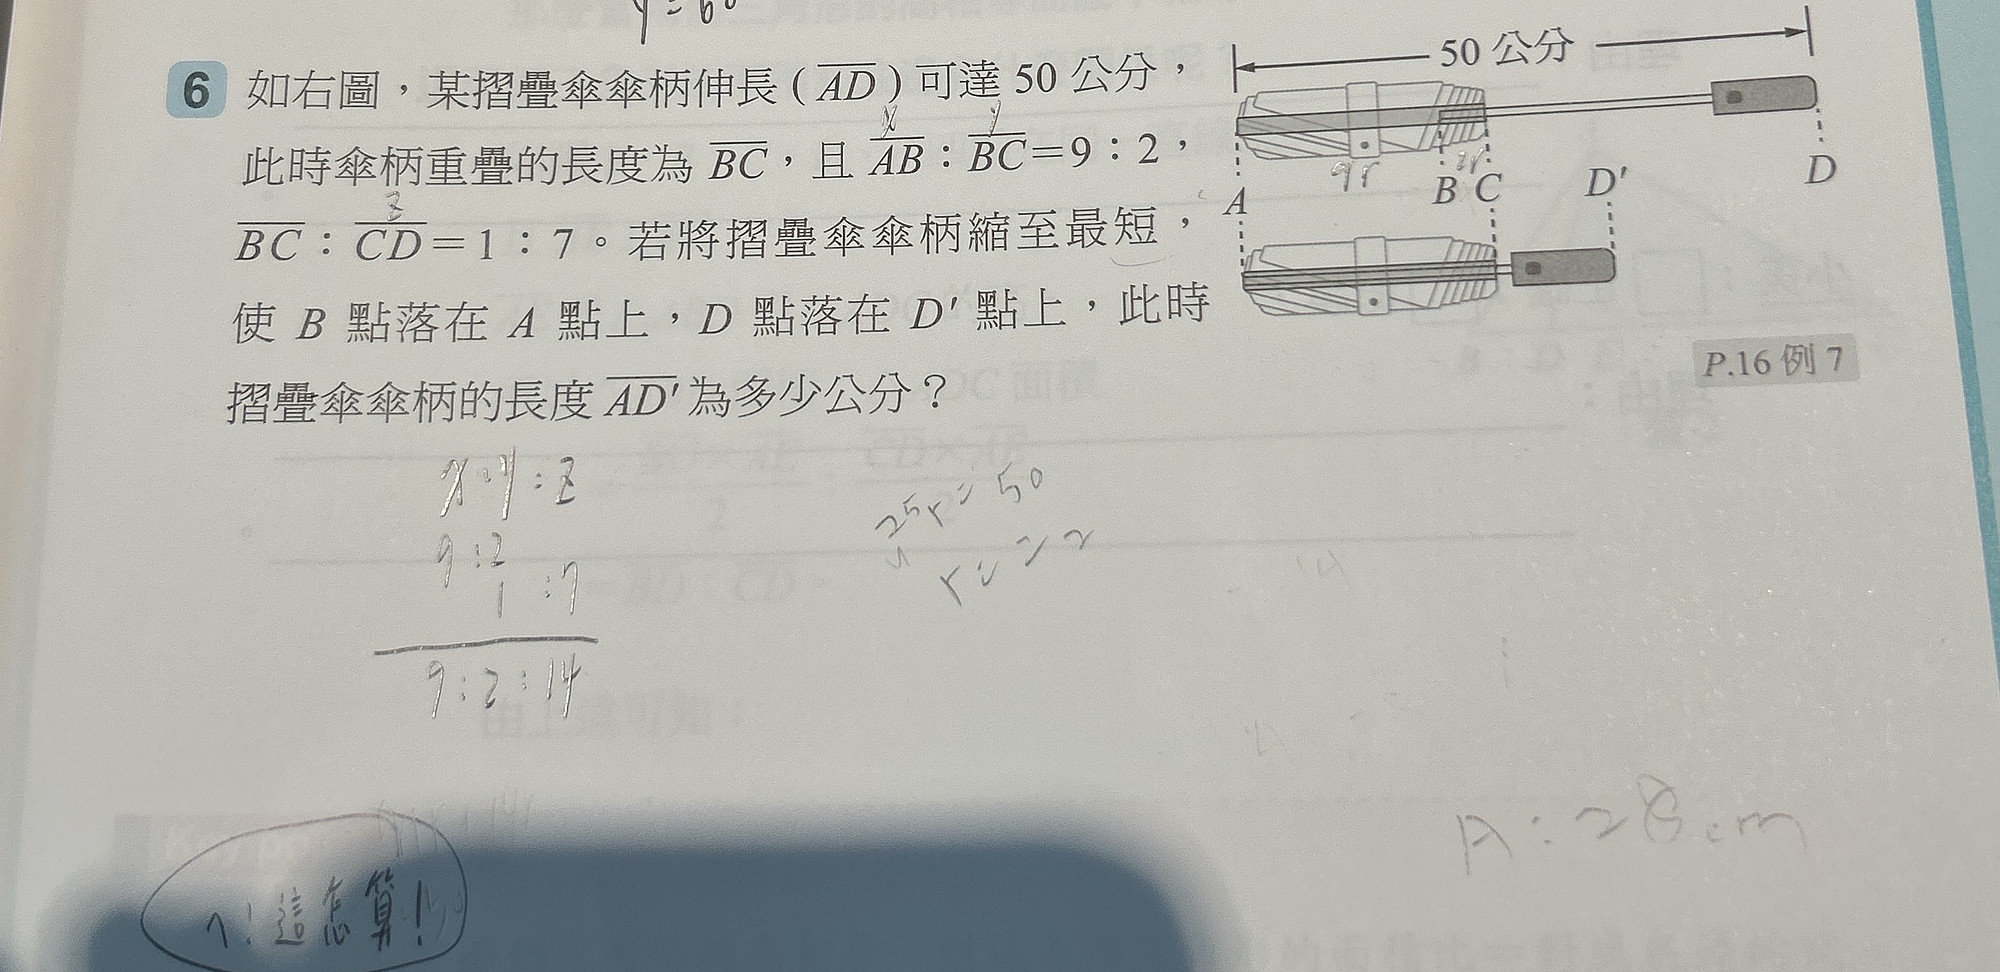 y = 60
6 如右圖,某摺疊傘傘柄伸長(AD)可達 50 公分,
x y
此時傘柄重疊的長度為 BC,且 AB:BC=9:2,
z
BC:CD=1:7。若將摺疊傘傘柄縮至最短,
使 B 點落在 A 點上,D 點落在 D' 點上,此時
摺疊傘傘柄的長度 AD' 為多少公分?
50 公分
9r 2r
A B C D' D
P.16 例 7
x:y:z
9:2
1:7
9:2:14
25r = 50
r = 2
A:28cm
ㄟ!這怎算!